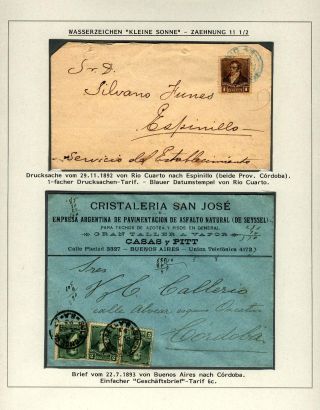 WASSERZEICHEN "KLEINE SONNE" - ZAEHNUNG 11 1/2
Sr. D.
Silvano Funes
Espinillo
Servicio del Establecimiento
Drucksache vom 29.11.1892 von Rio Cuarto nach Espinillo (beide Prov. Córdoba).
1-facher Drucksachen-Tarif. - Blauer Datumstempel von Rio Cuarto.
CRISTALERIA SAN JOSÉ
EMPRESA ARGENTINA DE PAVIMENTACION DE ASFALTO NATURAL (DE SEYSSEL)
PARA TECHOS DE AZOTEA Y PISOS EN GENERAL
GRAN TALLER A VAPOR
CASAS y PITT
Calle Piedad 3327 - BUENOS AIRES - Union Telefónica 4172
Sres
V. y C. Callerio
calle Alvear
Córdoba
Brief vom 22.7.1893 von Buenos Aires nach Córdoba.
Einfacher "Geschäftsbrief"-Tarif 6c.